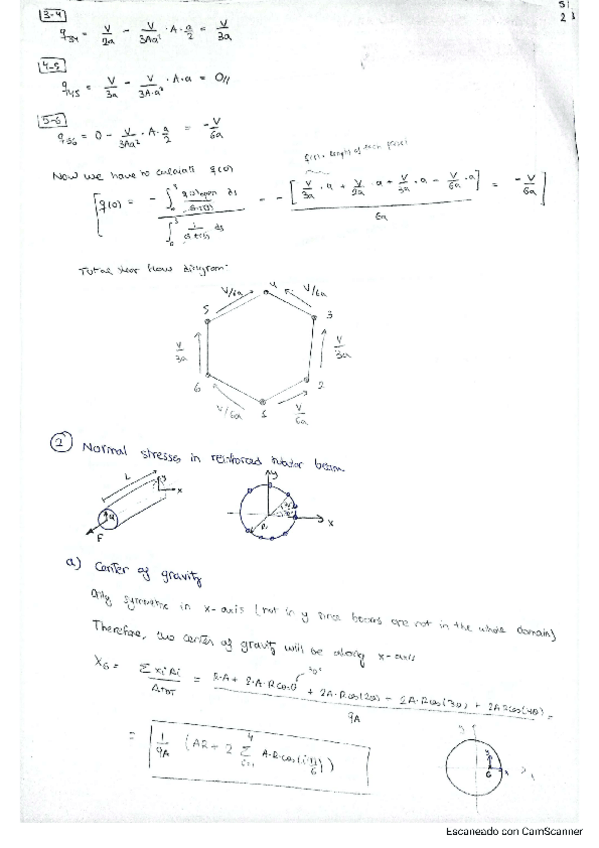 51
23
3-4
q34 = V/2a - V/3Aa² · A · a/2 = V/3a
4-5
q45 = V/3a - V/3A·a² · A·a = 0//
5-6
q56 = 0 - V/3Aa² · A · a/2 = -V/6a
length of each panel
Now we have to calculate q(0)
q(0) = - ∫ q(s)open ds / ∫ 1 ds = - [V/3a · a + V/2a · a + V/3a · a - V/6a · a] / 6a = -V/6a
Total shear flow diagram:
V/6a 4 V/6a
5 3
V/3a V/3a
6 2
V/6a 1 V/6a
2 Normal stresses in reinforced tubular beam
L y x F
y x
a) Center of gravity
Only symmetric in x-axis (not in y since beams are not in the whole domain)
Therefore, the center of gravity will be along x-axis
XG = Σ xi Ai / ATOT = R·A + 2·A·R cos θ + 2A·R cos(2θ) - 2A·R cos(3θ) + 2AR cos(4θ) / 9A =
30°
= 1/9A (AR + 2 Σ A·R·cos(i π/6))
4
i=1
G
Escaneado con CamScanner